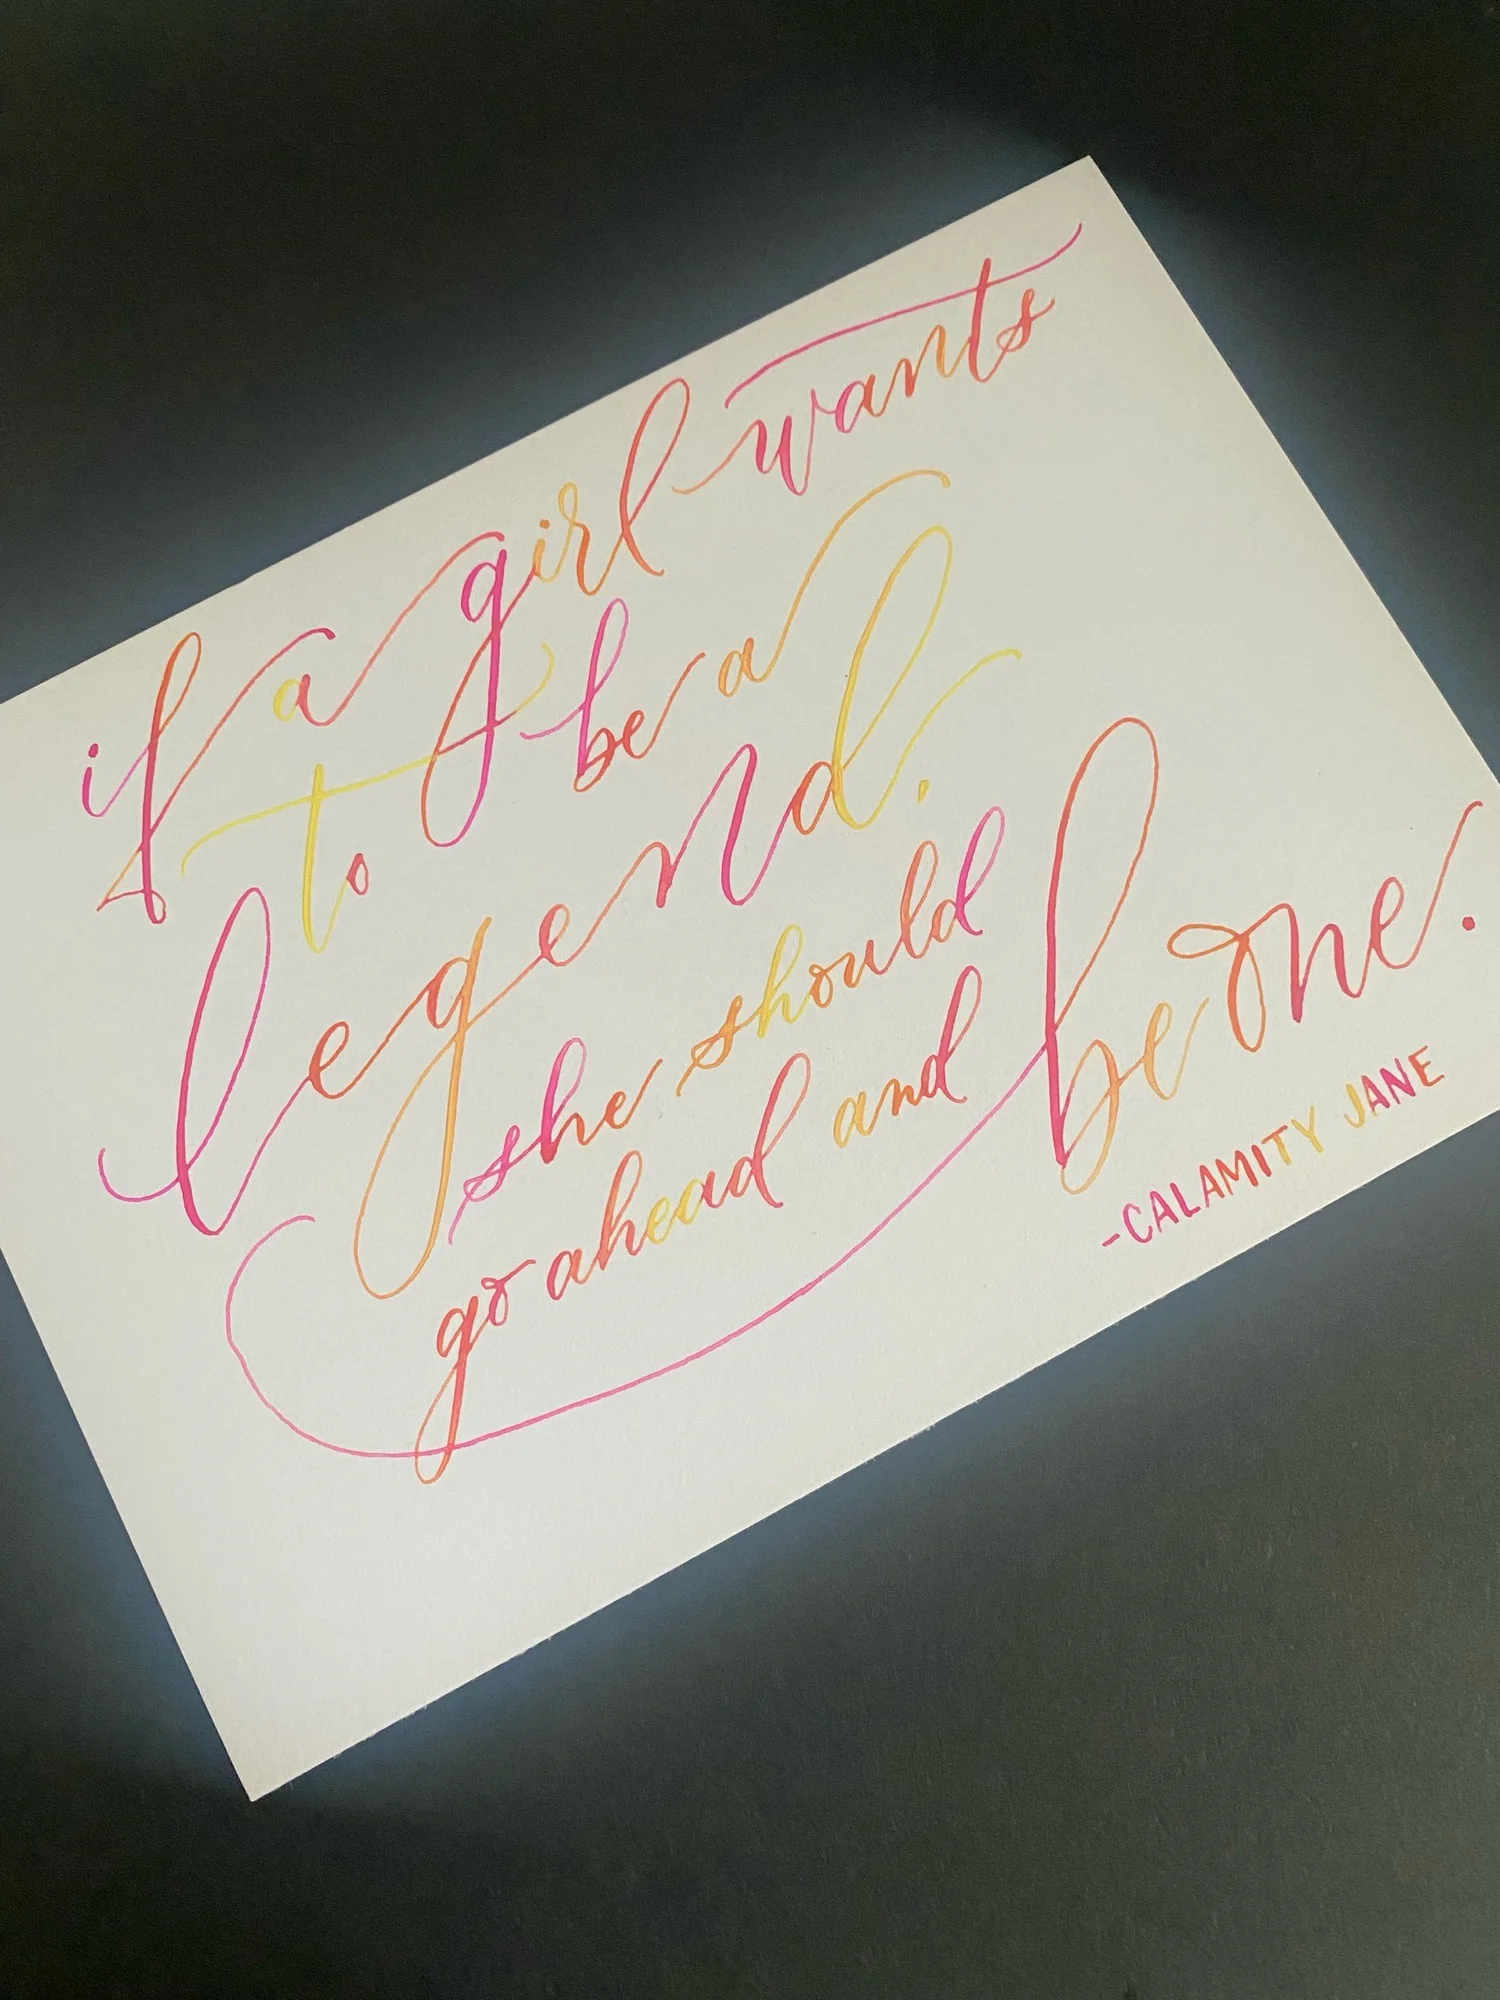 if a girl wants
to be a
legend,
she should
go ahead and be one.
-CALAMITY JANE